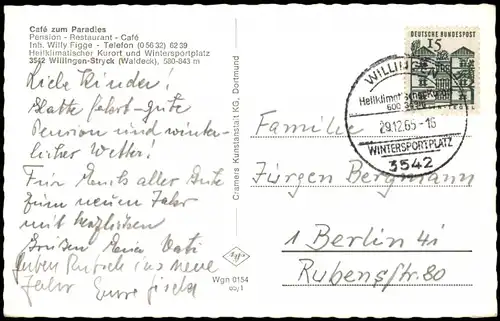 Café zum Paradies
Pension - Restaurant - Café
Inh. Willy Figge - Telefon (05632) 6239
Heilklimatischer Kurort und Wintersportplatz
3542 Willingen-Stryck (Waldeck), 580-843 m
Liebe Kinder!
Glatte Fahrt - gute
Pension und winter-
licher Wetter!
Für Euch alles Gute
zum neuen Jahr
mit herzlichen
Grüßen Euer Vati
Guten Rutsch ins neue
Jahr Eure
Cramers Kunstanstalt KG, Dortmund
Wgn 0154
DEUTSCHE BUNDESPOST
15
WILLINGEN
Heilklimat
29.12.65-16
WINTERSPORTPLATZ
3542
Familie
Jürgen Bergmann
1 Berlin 41
Rubensstr. 80